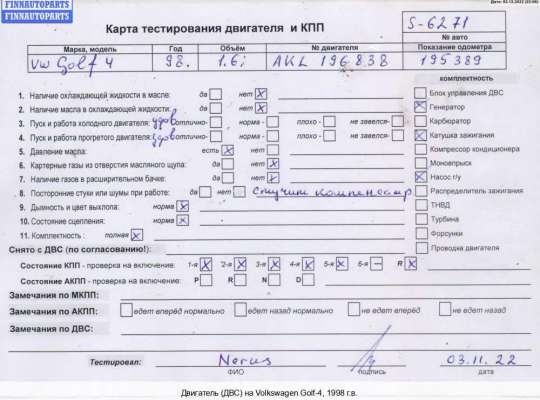 FINNAUTOPARTS
FINNAUTOPARTS
Карта тестирования двигателя и КПП
S-6271
№ авто
Марка, модель Год Объём № двигателя Показание одометра
VW Golf 4 98. 1.6i AKL 196838 195389
комплектность
1. Наличие охлаждающей жидкости в масле: да нет X
Блок управления ДВС
2. Наличие масла в охлаждающей жидкости: да нет X
Генератор X
3. Пуск и работа холодного двигателя: удов отлично- норма - плохо - не завелся-
Карбюратор
4. Пуск и работа прогретого двигателя: удов отлично- норма - плохо - не завелся-
Катушка зажигания X
5. Давление масла: есть X нет
Компрессор кондиционера
6. Картерные газы из отверстия масляного щупа: да нет X
Моновпрыск
7. Наличие газов в расширительном бачке: да нет X
Насос г/у X
8. Посторонние стуки или шумы при работе: да нет Стучит компенсатор
Распределитель зажигания
9. Дымность и цвет выхлопа: норма X
ТНВД
10. Состояние сцепления: норма X
Турбина
11. Комплектность: полная X
Форсунки
Снято с ДВС (по согласованию!):
Проводка двигателя
Состояние КПП - проверка на включение: 1-я X 2-я X 3-я X 4-я X 5-я X 6-я – R X
Состояние АКПП - проверка на включение: P R N D
Замечания по МКПП:
Замечания по АКПП: едет вперёд нормально едет назад нормально не едет вперёд не едет назад
Замечания по ДВС:
Тестировал: Nerus 03.11.22
ФИО подпись дата
Двигатель (ДВС) на Volkswagen Golf-4, 1998 г.в.